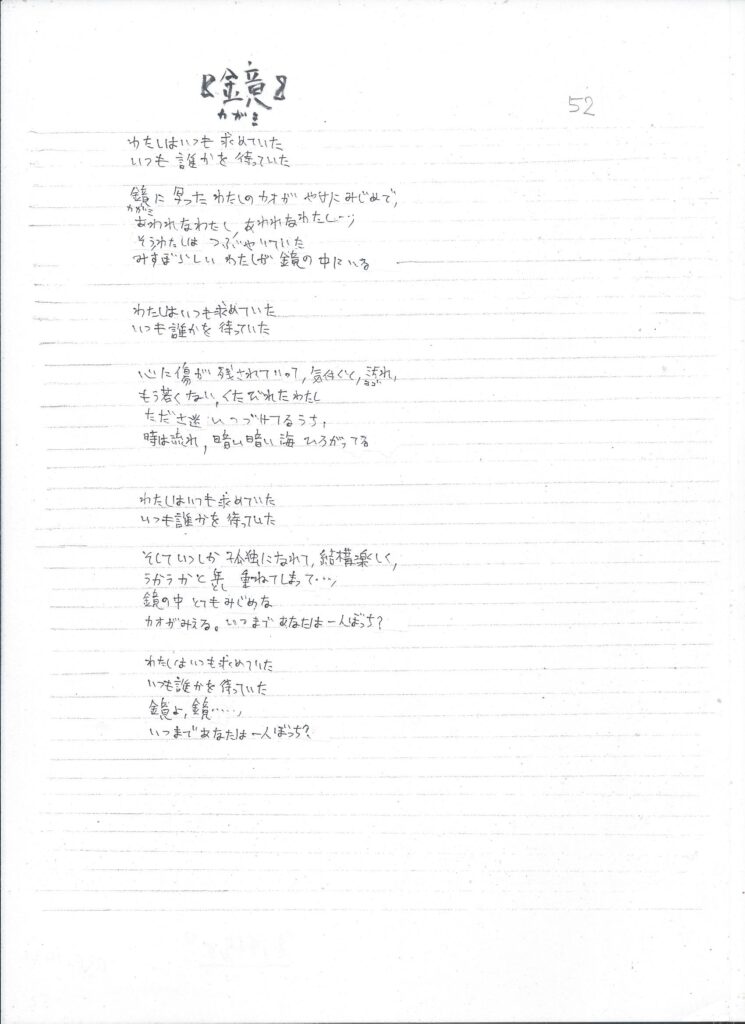 【鏡】
かがミ
52
わたしはいつも 求めていた
いつも 誰かを 待っていた
鏡に 写った わたしのカオが やけに みじめで,
かがミ
あわれなわたし, あわれなわたし…,
そうわたしは つぶやいていた
みすぼらしい わたしが 鏡の中にいる
わたしはいつも求めていた
いつも 誰かを 待っていた
心に傷が 残されていって, 気付くと, 汚れ,
もう若くない, くたびれたわたし
たださ迷いつづけてるうち,
時は流れ, 暗い暗い 海 ひろがってる
わたしはいつも求めていた
いつも誰かを 待っていた
そしていつしか 孤独になれて, 結構楽しく,
うかうかと 年 重ねてしまって…,
とし
鏡の中 とてもみじめな
カオがみえる。いつまで あなたは 一人ぼっち?
わたしはいつも求めていた
いつも誰かを 待っていた
鏡よ, 鏡……,
いつまであなたは 一人ぼっち?